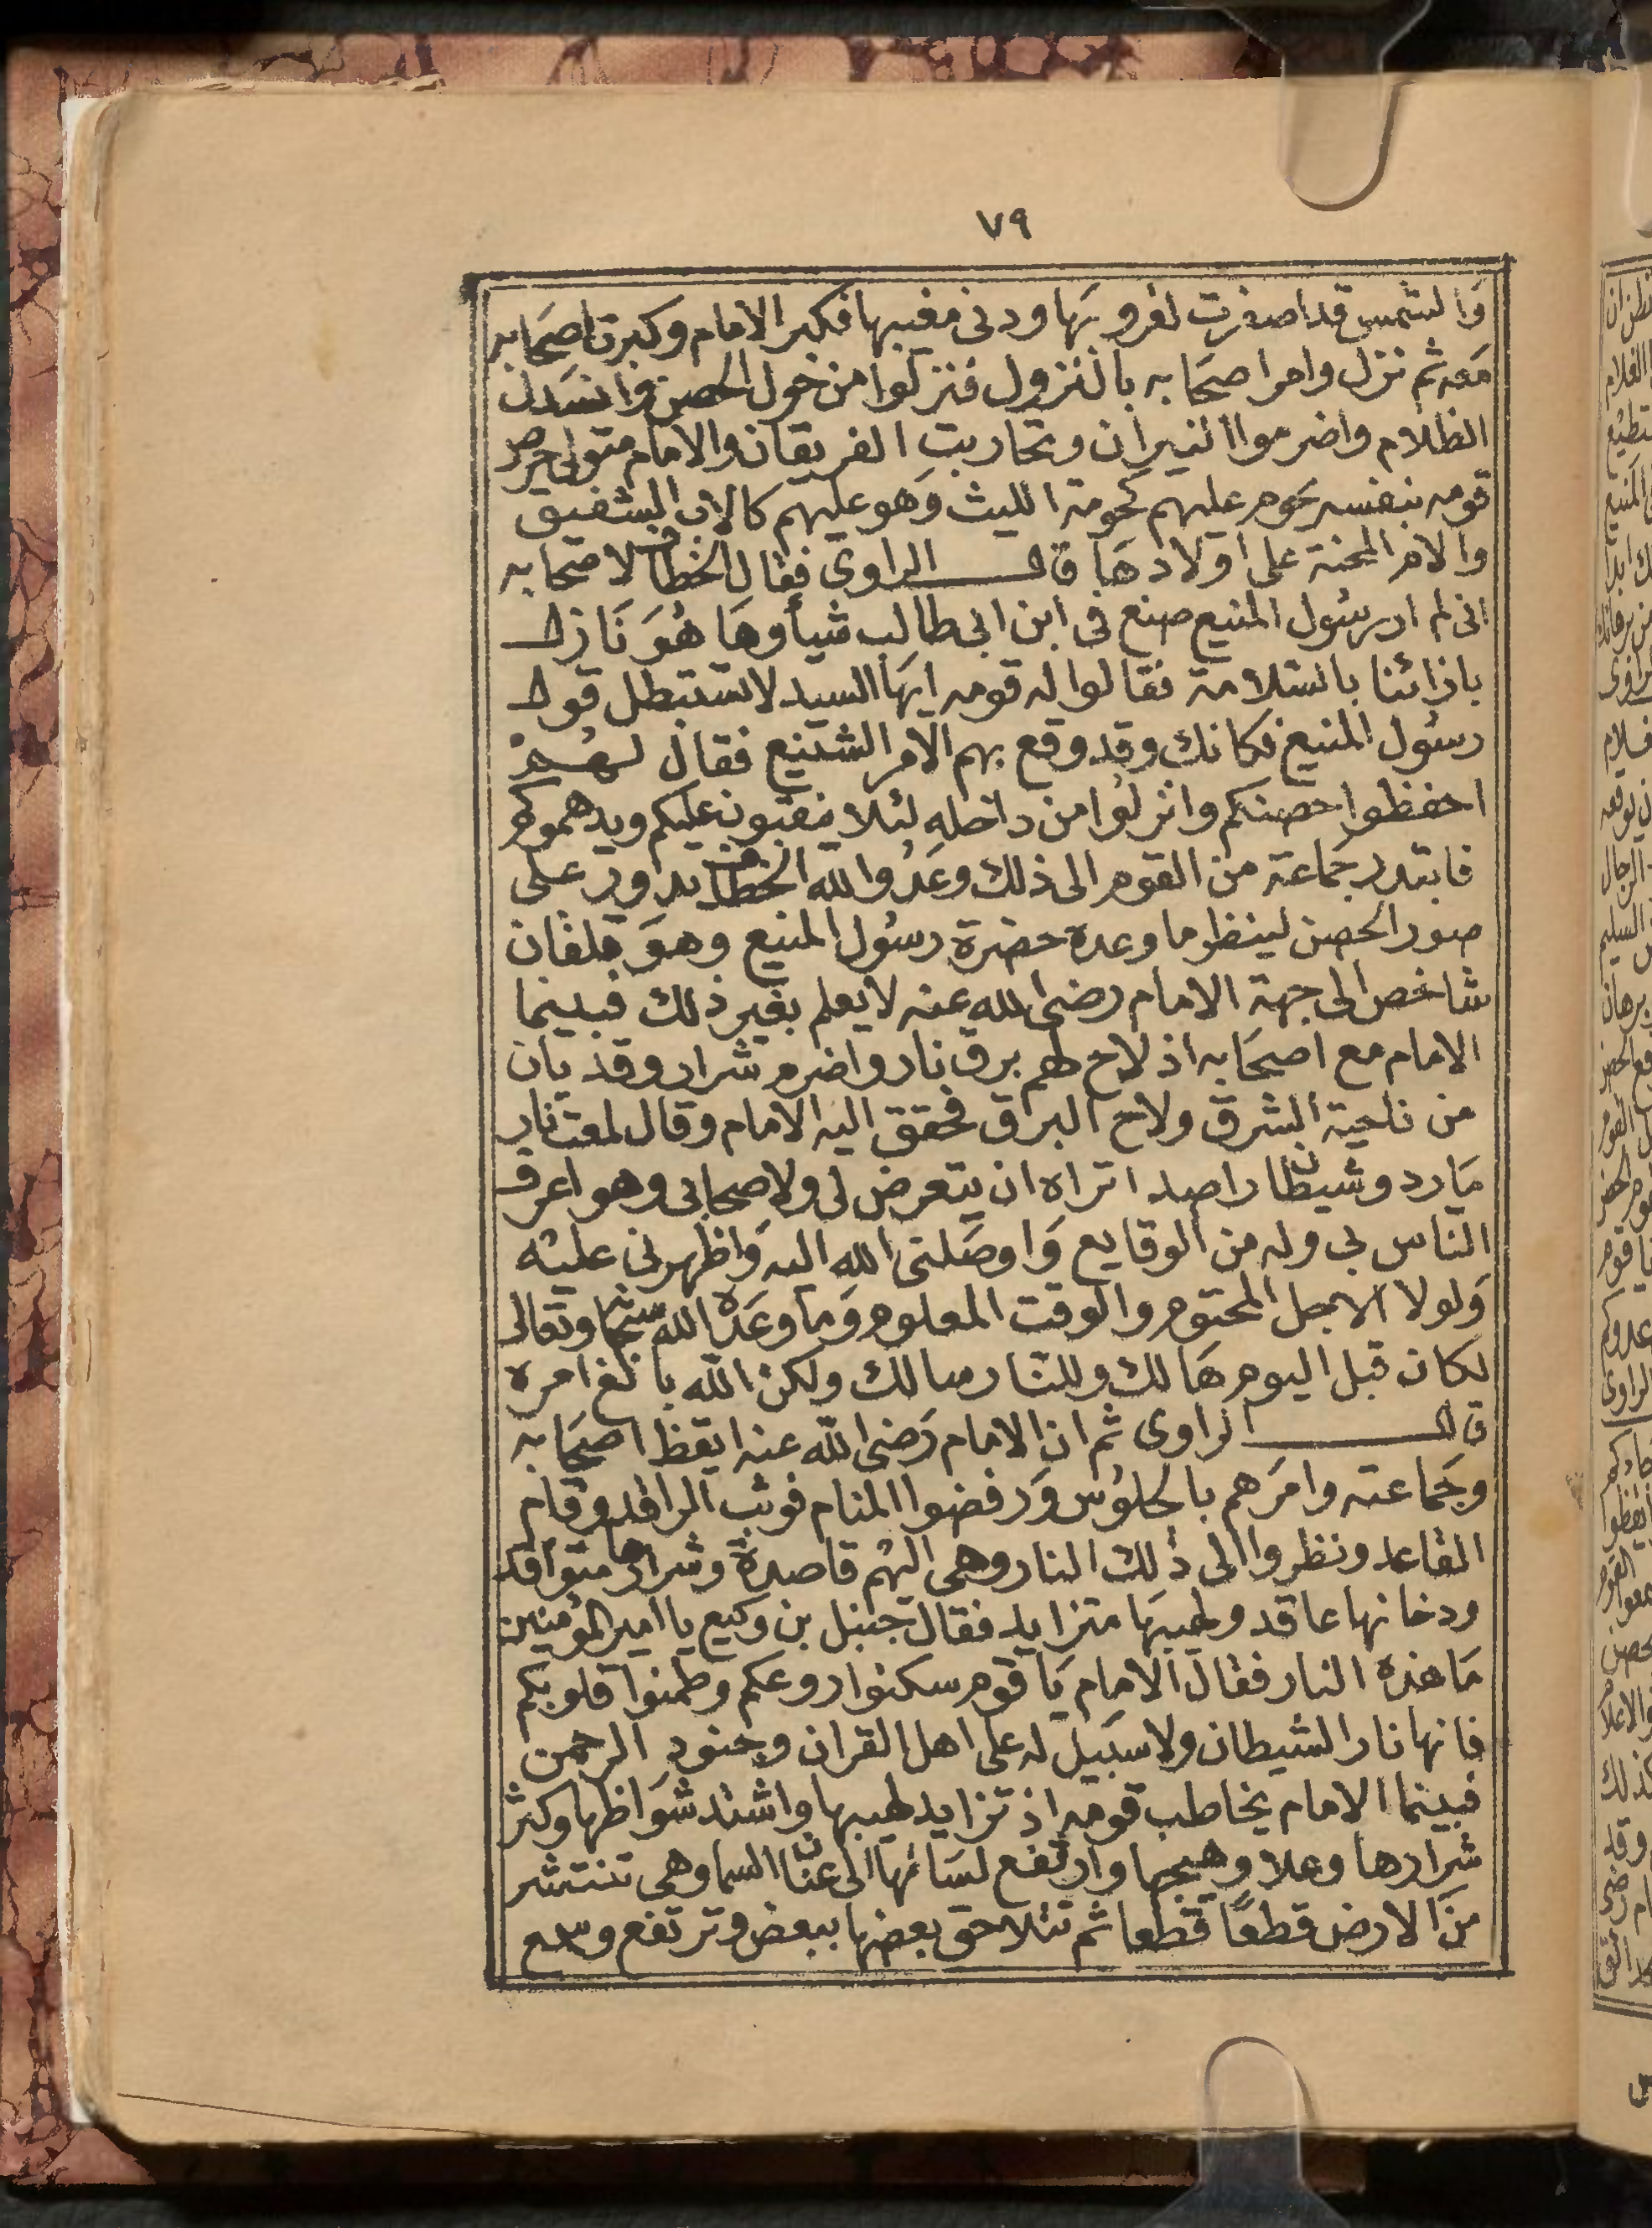 ٧٩
وَالشمس قد اصفرت لغروبهَا ودنى مغيبها فكبر الامام وكبرت اصحَابه
مَعه ثم نزل وامر اصحَابه بالنزول فنزلوا من حول الحصن وانسَدل
الظلام واضرموا النيران وتحاربت الفريقان والامام متولى حرص
قومه بنفسه يحَوم عليهم كحومة الليث وَهو عليهم كالاب الشفيق
والام المحنة على اولادهَا قال الراوى فقال الخطاف لاصحابه
انى لم ار رسُول المنيع صنع فى ابن ابى طالب شيأ وهَا هُوَ نَازل
بازائنا بالسَلامة فقالوا له قومه ايهَا السيد لا تستبطل قول
رسُول المنيع فكانك وقد وقع بهم الامر الشنيع فقال لهُم
احفظوا حصنكم وانزلوا من داخله لئلا يفتبون عليكم ويدهموكم
فابتدر جمَاعة من القوم الى ذلك وعَدُوالله الخطاف يداور على
صور الحصن لينظر ما وعده حضرة رسُول المنيع وهوَ قلقان
شاخص الى جهة الامام رضى الله عنه لا يعلم بغير ذلك فبينما
الامام مع اصحَابه اذ لاح لهم برق نار واضرم شرار وقد بان
من ناحية الشرق ولاح البرق فحقق اليه الامام وقال لمعت نار
مَارد وشيطان راصد اتراه ان يتعرض لى ولاصحابى وهو اعرف
الناس بى وله من الوقايع وَاوصَلنى الله اليه وَاظهرنى عليْه
وَلولا الاجل المحتوم والوقت المعلوم وَما وعَده الله سبحَانه وتعالى
لكان قبل اليوم هَالك وللنار سالك ولكن الله بالغ امره
قال الراوى ثم ان الامام رَضى الله عنه ايقظ اصحَابه
وجَماعته وامرَهم بالجلوُس وَرفضوا المنام فوثب الراقد وقام
القاعد ونظروا الى ذلك النار وهى اليهُم قاصدة وشرارها متواقد
ودخانها عاقد ولهيبهَا متزايد فقال جنبل بن وكيع يا امير المؤمنين
مَا هذه النار فقال الامام يَا قوم سكنوا روعكم وطمنوا قلوبكم
فانها نار الشيطان ولا سبَيل له على اهل القران وجنود الرحمن
فبينما الامام يخاطب قومه اذ تزايد لهيبها واشتد شوَاظها وكثر
شرارها وعلا وهيجها وارتفع لسَانهَا الى عنان السما وهى تنتشر
منَ الارض قطعًا قطعا ثم تتلاحق بعضها ببعض وترتفع وسمع